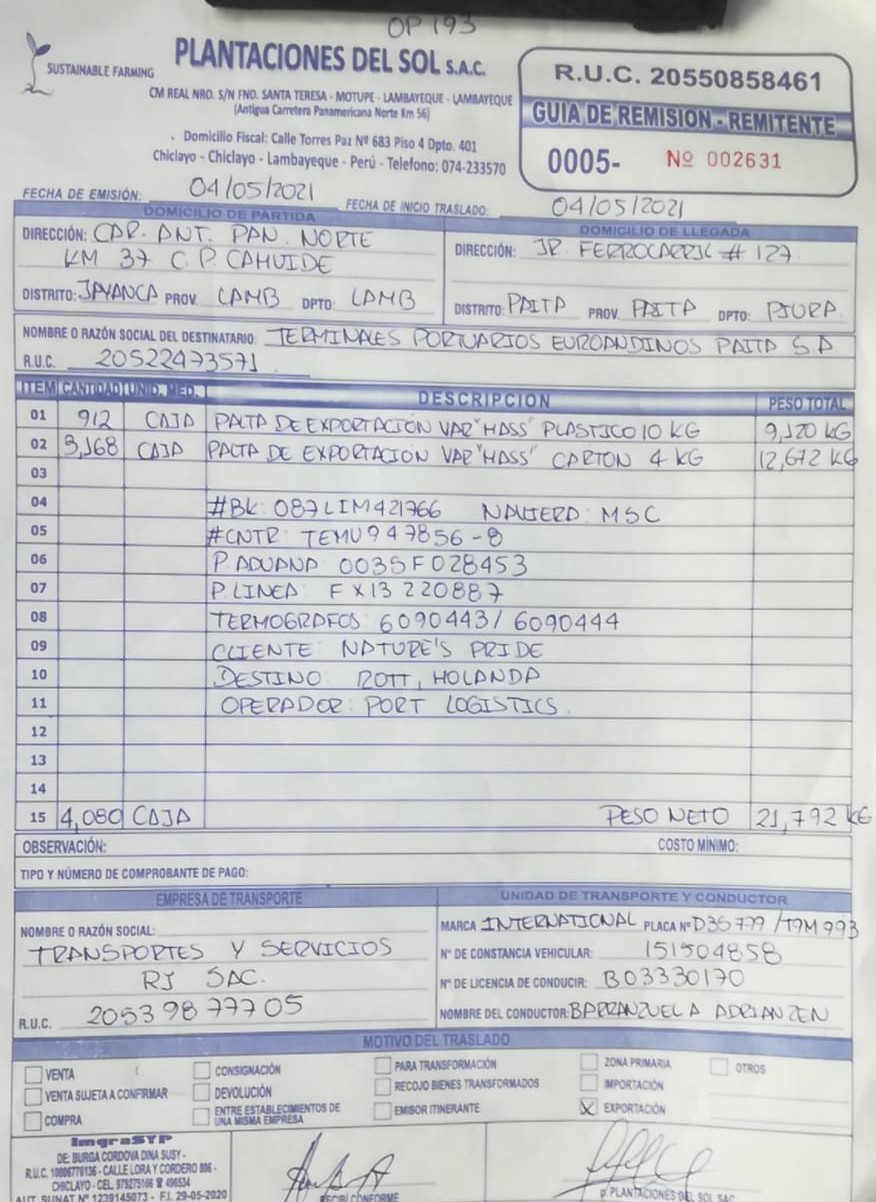 OP 193
SUSTAINABLE FARMING
PLANTACIONES DEL SOL S.A.C.
CM REAL NRO. S/N FND. SANTA TERESA - MOTUPE - LAMBAYEQUE - LAMBAYEQUE
(Antigua Carretera Panamericana Norte Km 56)
Domicilio Fiscal: Calle Torres Paz Nº 683 Piso 4 Dpto. 401
Chiclayo - Chiclayo - Lambayeque - Perú - Telefono: 074-233570
R.U.C. 20550858461
GUIA DE REMISION - REMITENTE
0005- Nº 002631
FECHA DE EMISIÓN: 04/05/2021 FECHA DE INICIO TRASLADO: 04/05/2021
DOMICILIO DE PARTIDA
DIRECCIÓN: CAR. ANT. PAN. NORTE
KM 37 C.P. CAHUIDE
DISTRITO: JAYANCA PROV. LAMB DPTO: LAMB
DOMICILIO DE LLEGADA
DIRECCIÓN: JR. FERROCARRIL # 127
DISTRITO: PAITA PROV PAITA DPTO: PIURA
NOMBRE O RAZÓN SOCIAL DEL DESTINATARIO: TERMINALES PORTUARIOS EUROANDINOS PAITA S A
R.U.C. 20522473571
ITEM CANTIDAD UNID. MED. DESCRIPCION PESO TOTAL
01 912 CAJA PALTA DE EXPORTACION VAR "HASS" PLASTICO 10 KG 9,120 KG
02 3,168 CAJA PALTA DE EXPORTACION VAR "HASS" CARTON 4 KG 12,672 KG
03
04 #BK: 087LIM421766 NAVIERA: MSC
05 #CNTR: TEMU947856-8
06 P. ADUANA 0035F028453
07 P. LINEA FX13 220887
08 TERMOGRAFOS: 6090443/ 6090444
09 CLIENTE: NATURE'S PRIDE
10 DESTINO: ROTT, HOLANDA
11 OPERADOR: PORT LOGISTICS.
12
13
14
15 4,080 CAJA PESO NETO 21,792 KG
OBSERVACIÓN: COSTO MÍNIMO:
TIPO Y NÚMERO DE COMPROBANTE DE PAGO:
EMPRESA DE TRANSPORTE
NOMBRE O RAZÓN SOCIAL:
TRANSPORTES Y SERVICIOS
RJ SAC.
R.U.C. 20539877705
UNIDAD DE TRANSPORTE Y CONDUCTOR
MARCA INTERNATIONAL PLACA Nº D3S779 /T9M993
Nº DE CONSTANCIA VEHICULAR: 151504858
Nº DE LICENCIA DE CONDUCIR: B03330170
NOMBRE DEL CONDUCTOR: BARRANZUELA ADRIANZEN
MOTIVO DEL TRASLADO
VENTA
VENTA SUJETA A CONFIRMAR
COMPRA
CONSIGNACIÓN
DEVOLUCIÓN
ENTRE ESTABLECIMIENTOS DE
UNA MISMA EMPRESA
PARA TRANSFORMACIÓN
RECOJO BIENES TRANSFORMADOS
EMISOR ITINERANTE
ZONA PRIMARIA
IMPORTACIÓN
X EXPORTACIÓN
OTROS
ImgraSYP
DE: BURGA CORDOVA DINA SUSY -
R.U.C. 10806778136 - CALLE LORA Y CORDERO 806 -
CHICLAYO - CEL. 979275166 ☎ 496534
AUT. SUNAT Nº 1239145073 - F.I. 29-05-2020
RECIBI CONFORME
p. PLANTACIONES DEL SOL SAC